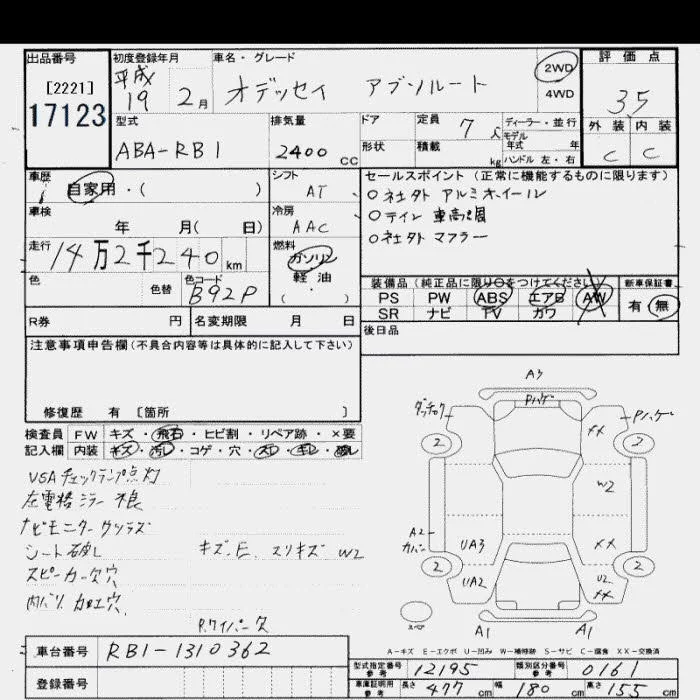 出品番号 初度登録年月 車名・グレード 評価点
[2221] 平成19 2月 オデッセイ アブソルート 2WD 4WD 3.5
17123
型式 排気量 ドア 定員 7人 ディーラー・並行 外装 内装
ABA-RB1 2400cc 形状 積載 kg モデル年式 年 ハンドル 左・右 C C
車歴 自家用・( ) シフト AT セールスポイント(正常に機能するものに限ります)
車検 年 月( 日) 冷房 AAC ○社外アルミホイール
○テイン 車高調
走行 14万2千240km 燃料 ガソリン 軽油 ( ) ○社外マフラー
色 色替 色コード B92P 装備品(純正品に限り○をつけてください) 新車保証書
PS PW ABS エアB AW 有 無
SR ナビ TV カワ
R券 円 名変期限 月 日 後日品
注意事項申告欄(不具合内容等は具体的に記入して下さい)
修復歴 有 [箇所 ]
検査員 FW キズ・飛石・ヒビ割・リペア跡・×要
記入欄 内装 キズ・汚レ・コゲ・穴・スレ・キレ・破レ
VSAチェックランプ点灯
左電格ミラー不良
ナビモニターグラグラズ
シート破レ キズ・E スリキズ W2
スピーカー欠穴
内バリ加工穴
Rワイパー欠
A3
Pハゲ
Pハゲ
××
2 2
W2
A2 UA3 ××
2 2
UA2 U2 ××
スペア
A1 A1
A-キズ E-エクボ U-凹み W-補修跡 S-サビ C-腐食 XX-交換済
車台番号 RB1-1310362
型式指定番号 参考 12195 類別区分番号 参考 0161
登録番号 車庫証明用 参考 長さ 477cm 幅 180cm 高さ 155cm